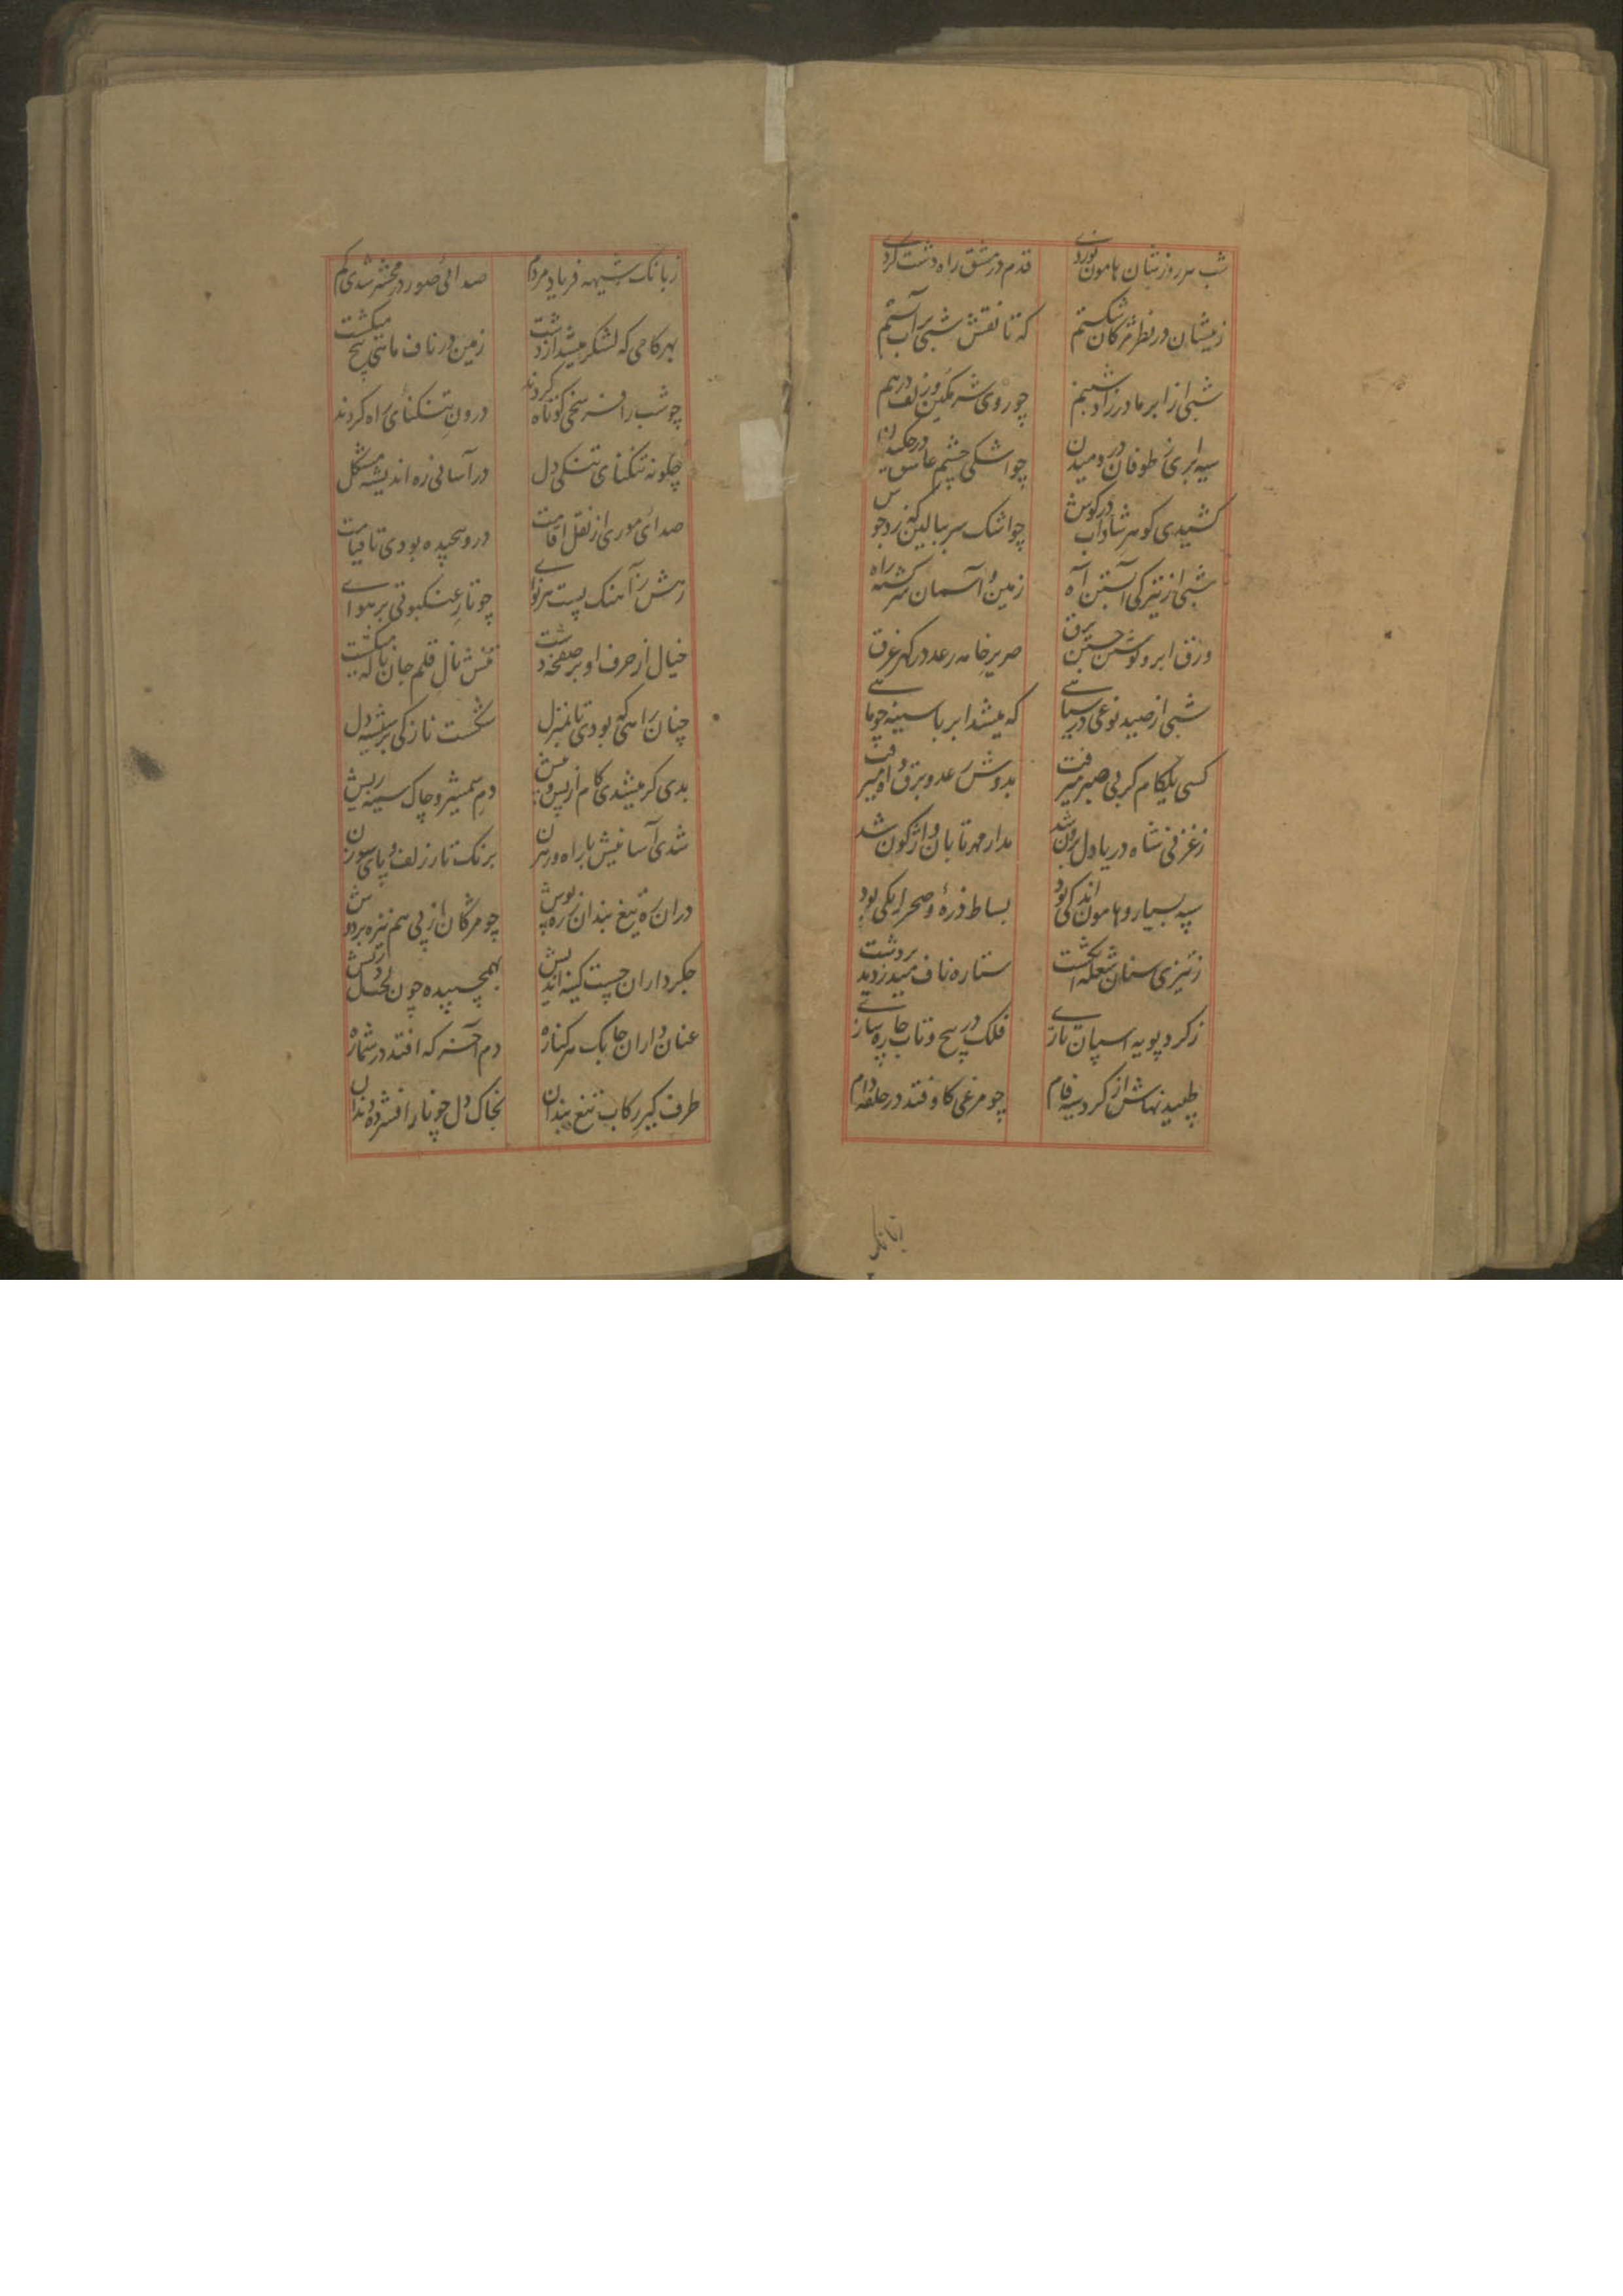 شب سر روز بتان هامون نوردی قدم در مشق راه دشت کردی
زیشان در نظر مژکان شکستم که تا نقش شبی بر آب بستم
شبی از ابر مادر زاد شبنم چو روی شرمکین و زلف درهم
سیه ابری ز طوفان در دمیدن چو اشکی چشم عاشق در چکیدن
کشیدی کوهر شاداب در کوش چو اشک سر ببالین
شبی از تیرکی آبستن آه زمین و آسمان سرکشته راه
ورق ابر و نوشتن جستن برق صریر خامه رعد در کهر غرق
شبی از صید نوعی در سیاهی که میشد ابر با سینه چو ماهی
کسی یککام کر بی صبر میرفت بدوش رعد و برق و ابر میرفت
ز غزنی شاه دریا دل برون شد مدار مهر تابان واژکون شد
سپه بسیار و هامون اندکی بود بساط ذره و صحرا یکی بود
ز تیزی سنان شعله انکشت ستاره ناف میدزدید بر پشت
ز کرد پویه اسپان تازی فلک در پیچ و تاب چاره سازی
طپیدنهاش از کرد سیه فام چو مرغی کاوفتد در حلقه دام
ز بانک شیهه فریاد مردم صدائی صور در محشر شدی کم
بهر کامی که لشکر میشد از دشت زمین در ناف ماهی پیچ میکشت
چو شب را سخی کوتاه کردند درون تنکنای راه کردند
چکونه تنکنای تنکی دل در آسانی زه اندیشه مشکل
صدای موری از نقل اقامت درو پیچیده بودی تا قیامت
رهش ز آهنک پست هر نوای چو تار عنکبوتی بر هوای
خیال از حرف او بر صفحه دشت تنش نال قلم جان ناله میکشت
چنان راهی که بودی تا بمنزل شکست نازکی بر شیشه دل
بدی کر میشدی کام از پس و پیش دم شمشیر و چاک سینه ریش
شدی آسانیش با راه و رهزن برنک تار زلف و پای سوزن
دران ره تیغ بندان زره پوش چو مژکان از پی هم نیزه بر دوش
جکرداران چست کینه اندیش بهم چسپیده چون لخت دل ریش
عنان داران چابک هر کناره دم آخر که افتد در شماره
طرف کیر رکاب تیغ بندان بخاک دل چو نار افشرده دندان
زبانک